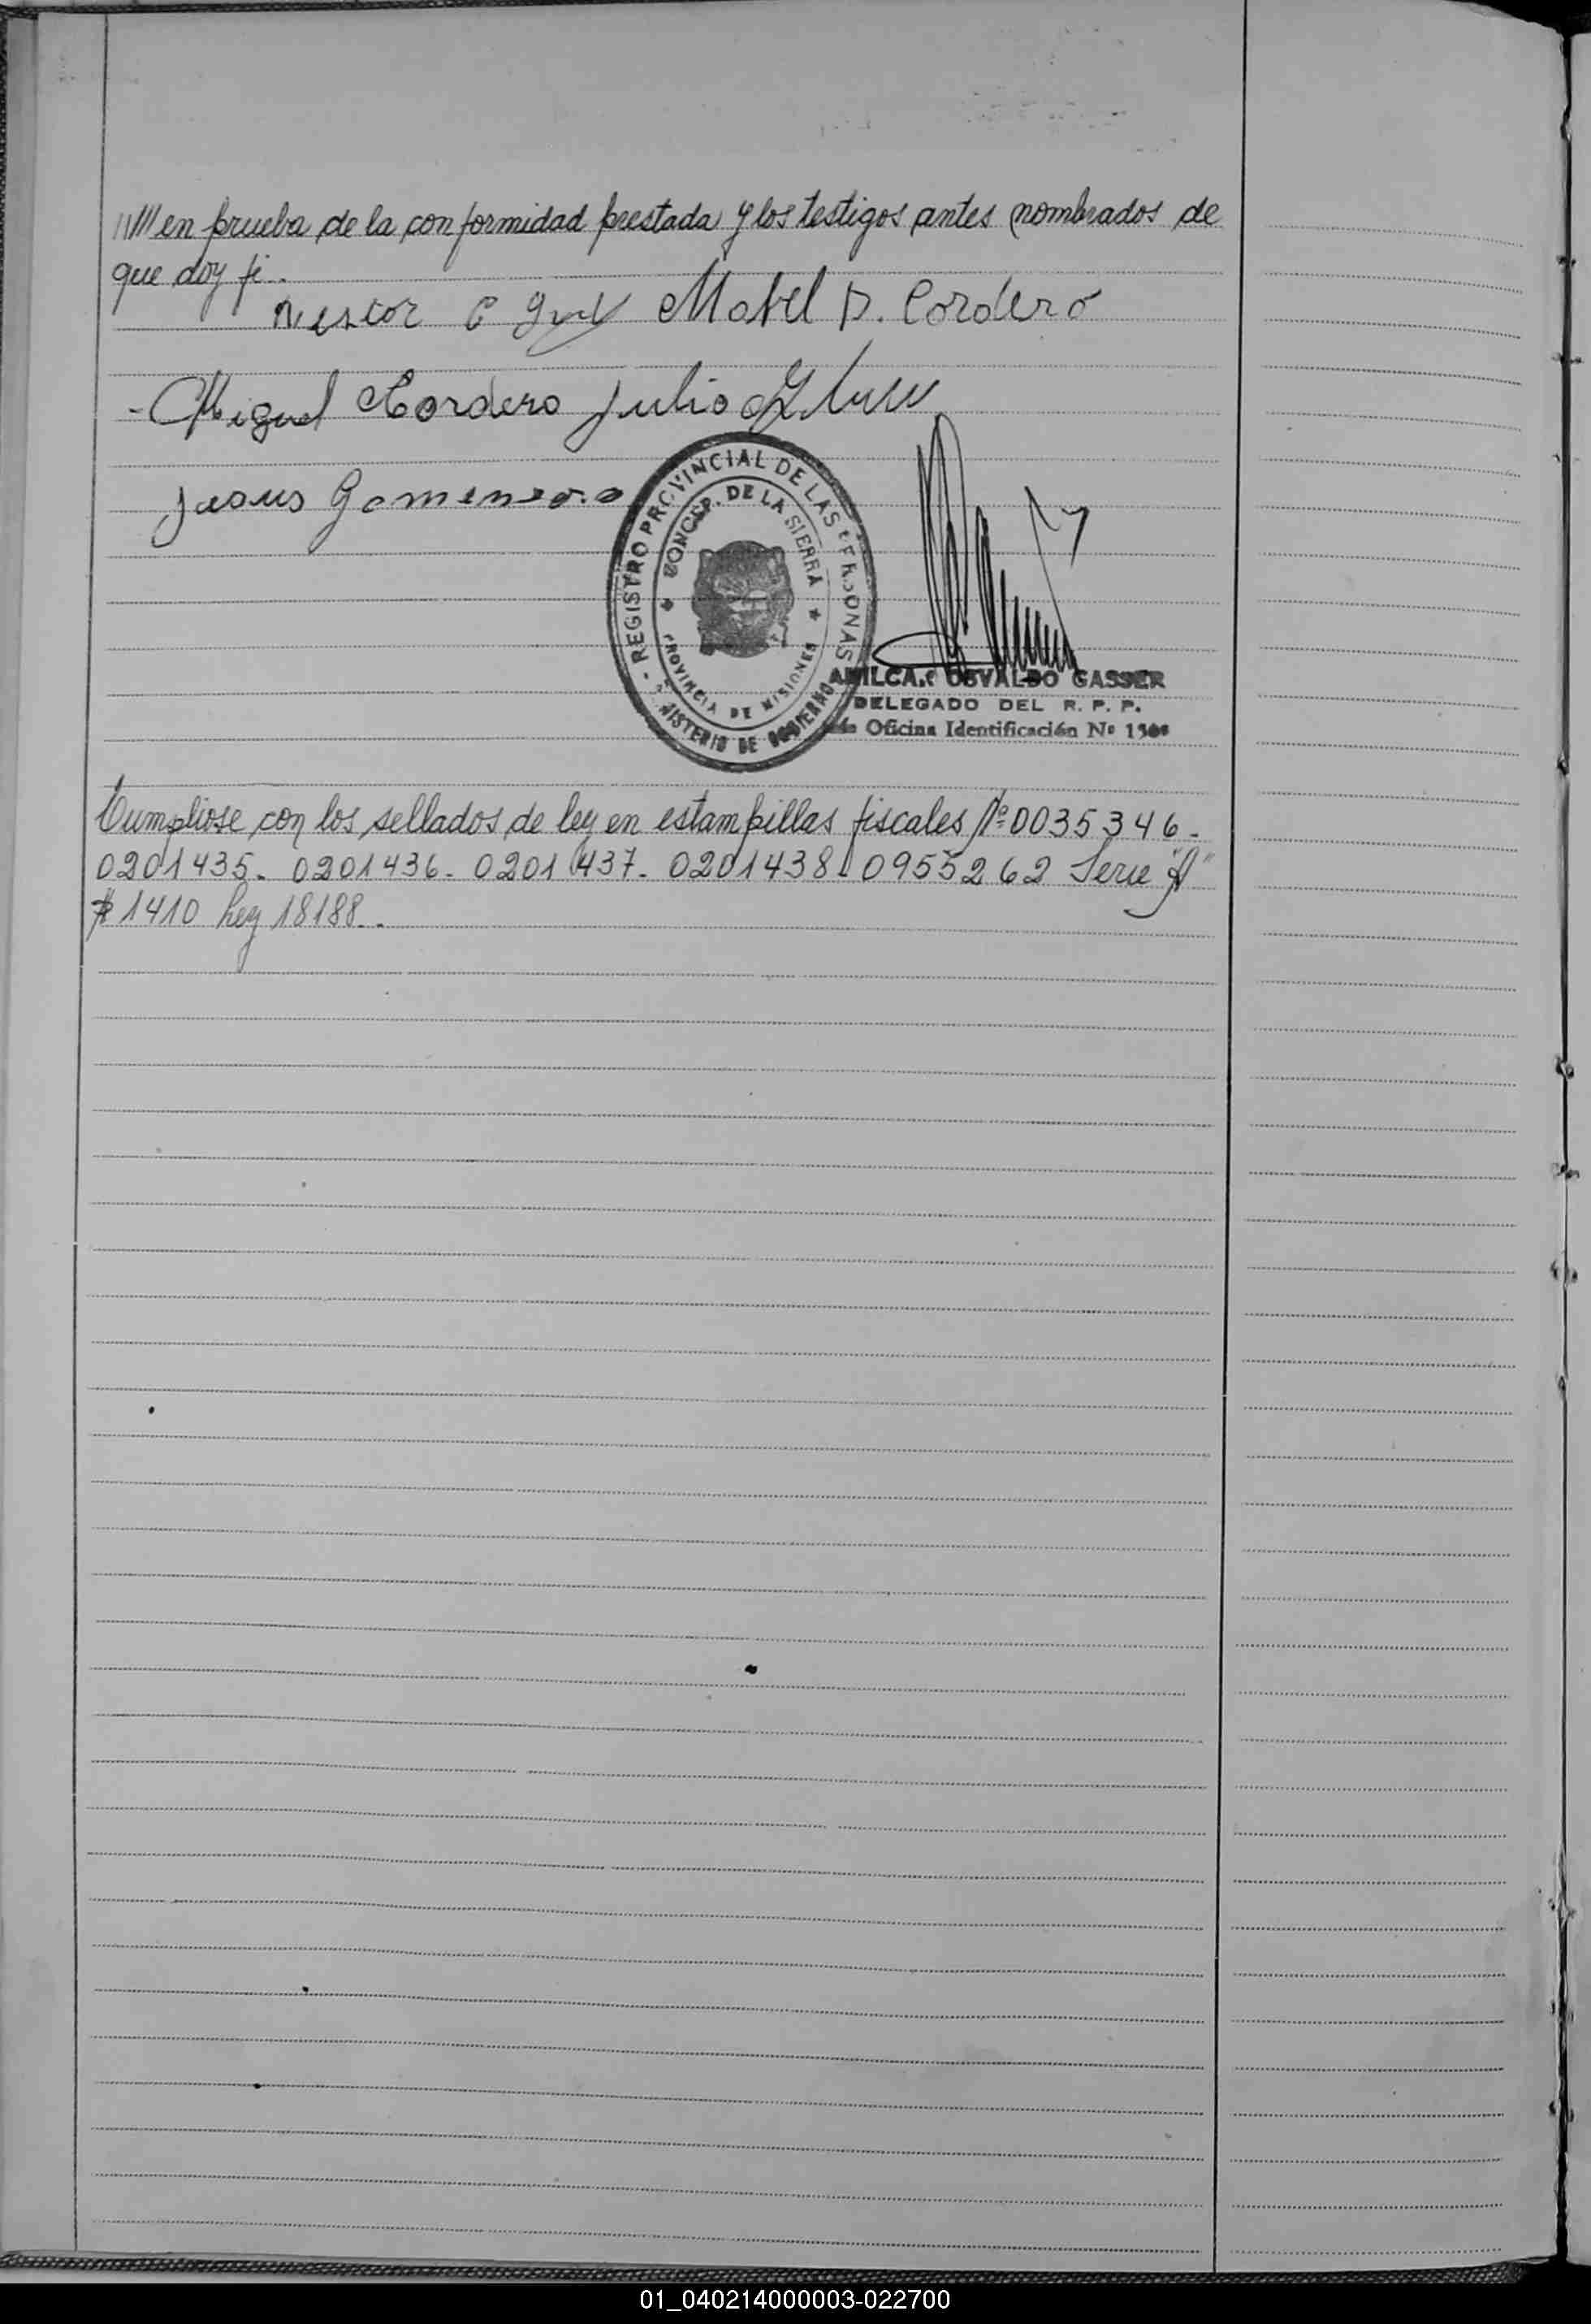 //// en prueba de la conformidad prestada y los testigos antes nombrados de
que doy fe.
Nestor C Mabel D. Cordero
- Miguel Cordero Julio
Jesus
- REGISTRO PROVINCIAL DE LAS PERSONAS -
CONCEP. DE LA SIERRA
PROVINCIA DE MISIONES
MINISTERIO DE GOBIERNO
AMILCAR OSVALDO GASSER
DELEGADO DEL R. P. P.
Oficina Identificación Nº
Cumpliose con los sellados de ley en estampillas fiscales Nº 0035346-
0201435- 0201436- 0201437- 0201438- 0955262 Serie "A"
$ 1410 Ley 18188..
01_040214000003-022700